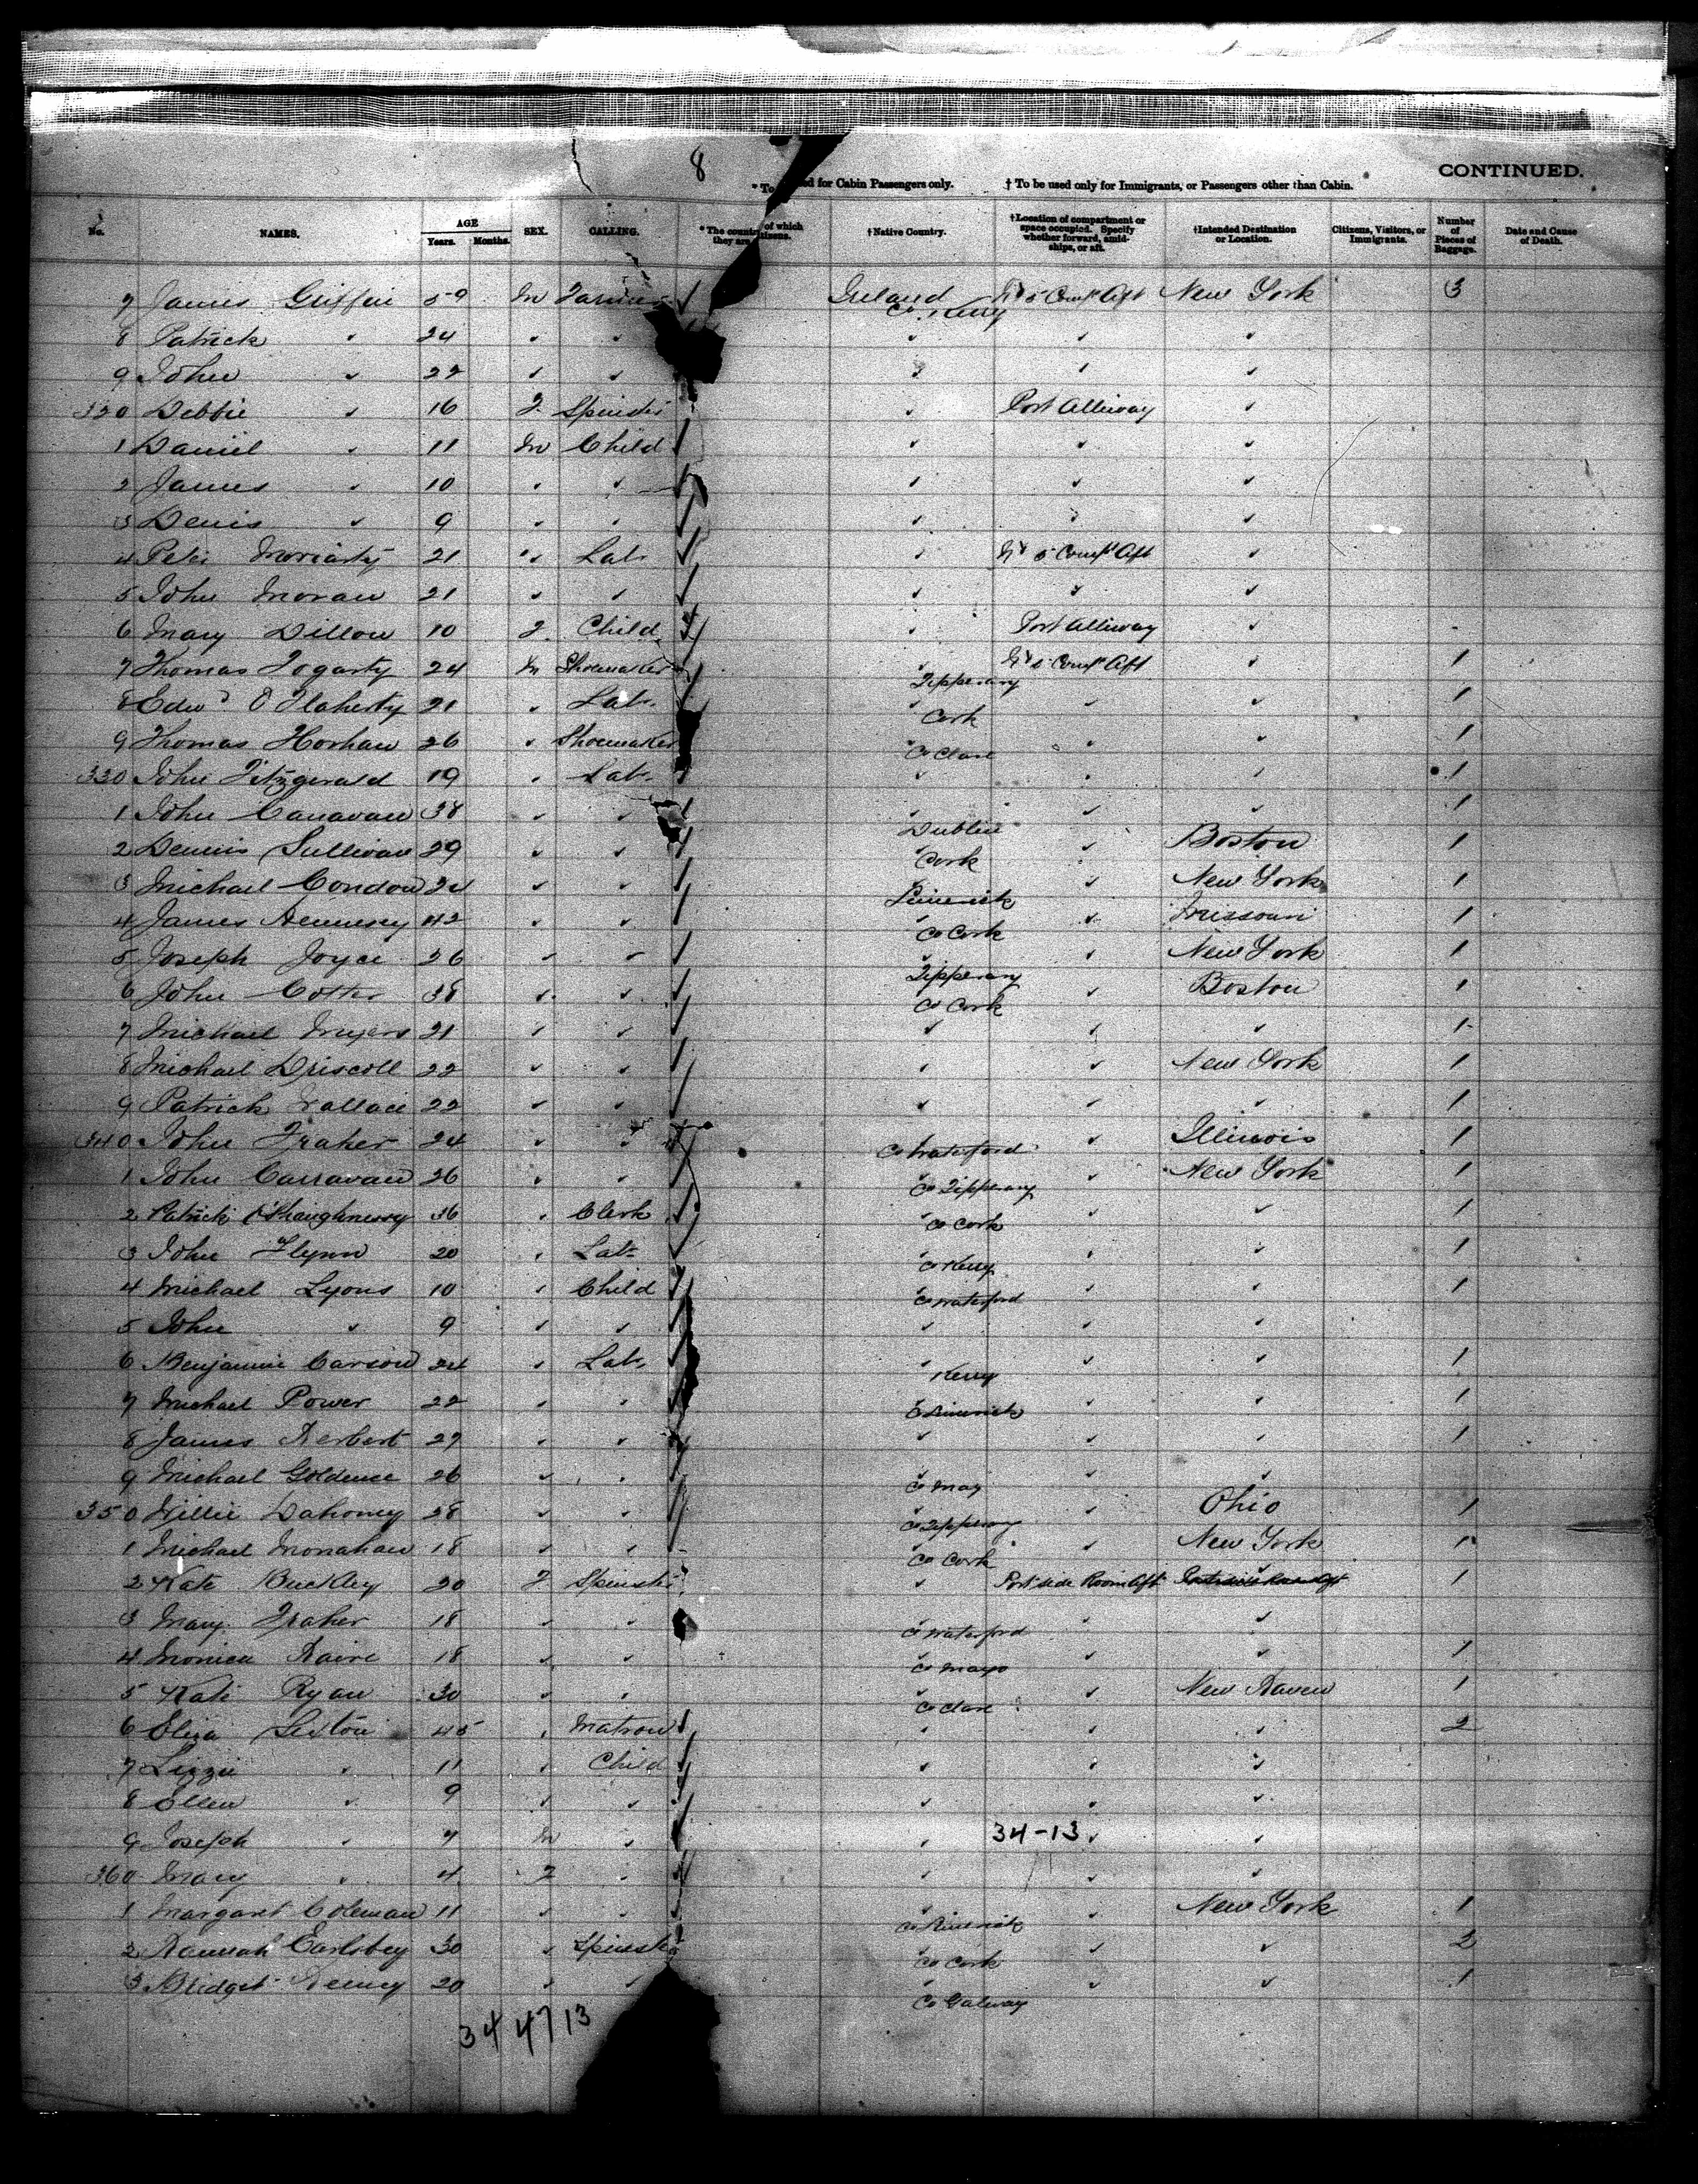 8
CONTINUED.
* To ed for Cabin Passengers only. † To be used only for Immigrants, or Passengers other than Cabin.
No. NAMES. AGE Years. Months. SEX. CALLING. * The country of which they are citizens. † Native Country. † Location of compartment or space occupied. Specify whether forward, amidships, or aft. † Intended Destination or Location. Citizens, Visitors, or Immigrants. Number of Pieces of Baggage. Date and Cause of Death.
7 James Griffin 59 M Farmer Ireland Co. Kerry 5 Compt Aft New York 3
8 Patrick " 24 " "
9 John " 22 " "
320 Debbie " 16 F Spinster " Port Alleway "
1 Daniel " 11 M Child " " "
2 James " 10 " " " " "
3 Denis " 9 " " " " "
4 Peter Moriarty 21 " Labr " 5 Compt Aft "
5 John Moran 21 " " " " "
6 Mary Dillon 10 F Child " Port Alleway "
7 Thomas Fogarty 24 M Shoemaker Tipperary 5 Compt Aft " 1
8 Edwd O'Flaherty 21 " Labr Cork " " 1
9 Thomas Horhan 26 " Shoemaker Co Clare " " 1
330 John Fitzgerald 19 " Labr " " " 1
1 John Canavan 38 " " Dublin " " 1
2 Dennis Sullivan 29 " " Cork " Boston 1
3 Michael Condon 24 " " Limerick " New York 1
4 James Hennessy 42 " " Co Cork " Missouri 1
5 Joseph Joyce 26 " " Tipperary " New York 1
6 John Cotter 38 " " Co Cork " Boston 1
7 Michael Myers 21 " " " " " 1
8 Michael Driscoll 22 " " " " New York 1
9 Patrick Wallace 22 " " " " " 1
340 John Fraher 24 " " Co Waterford " Illinois 1
1 John Carravan 26 " " Co Tipperary " New York 1
2 Patrick O'Shaughnessy 36 " Clerk Co Cork " " 1
3 John Flynn 20 " Labr Co Kerry " " 1
4 Michael Lyons 10 " Child Co Waterford " " 1
5 John " 9 " " " " "
6 Benjamin Carson 24 " Labr Kerry " " 1
7 Michael Power 22 " " Co Limerick " " 1
8 James Herbert 27 " " " " " 1
9 Michael Goldense 26 " " Co May " "
350 Willie Dahoney 28 " " Co Tipperary " Ohio 1
1 Michael Monahan 18 " " Co Cork " New York 1
2 Kate Buckley 20 F Spinster " Port side Room Aft 1
3 Mary Fraher 18 " " Co Waterford " "
4 Monica Haire 18 " " Co Mayo " " 1
5 Kate Ryan 30 " " Co Clare " New Haven 1
6 Eliza Sexton 45 " Matron " " " 2
7 Lizzie " 11 " Child " " "
8 Ellen " 9 " " " " "
9 Joseph " 7 M " " 34-13 " "
360 Mary " 4 F " " " "
1 Margaret Coleman 11 " " Co Limerick " New York 1
2 Hannah 30 " Spinster Co Cork " " 2
3 Bridget 20 " " Co Galway " " 1
34 4713